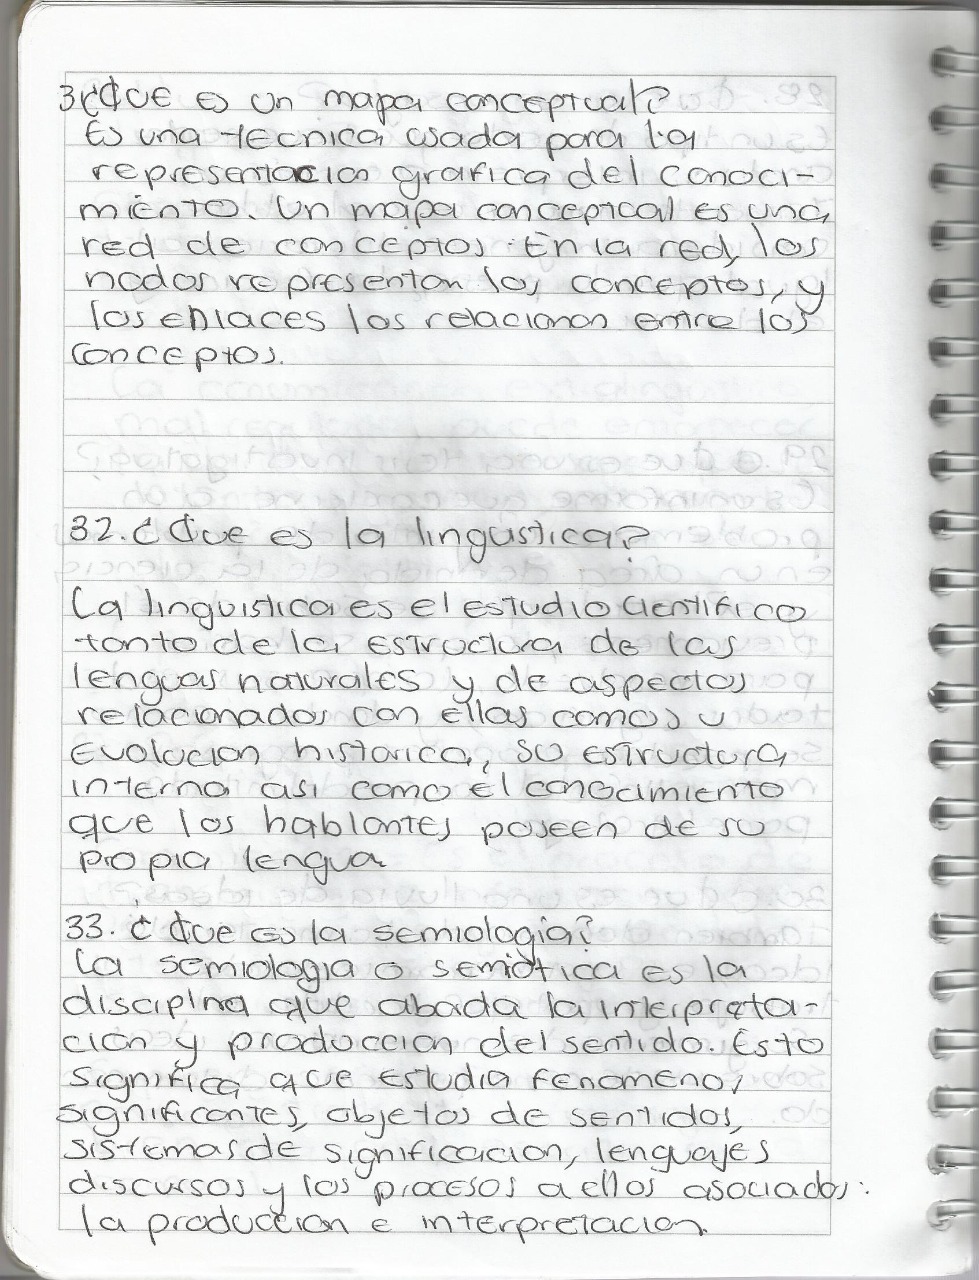 31¿Que es un mapa conceptual?
Es una tecnica usada para la
representacion grafica del conoci-
miento. Un mapa conceptual es una
red de conceptos. En la red, los
nodos representan los conceptos, y
los enlaces las relaciones entre los
conceptos.
32. ¿Que es la lingustica?
La linguistica es el estudio cientifico
tanto de la estructura de las
lenguas naturales y de aspectos
relacionados con ellas como su
Evolucion historica, su estructura
interna asi como el conocimiento
que los hablantes poseen de su
propia lengua
33. ¿Que es la semiologia?
La semiologia o semiotica es la
disciplina que abada la interpreta-
cion y produccion del sentido. Esto
significa que estudia fenomenos
significantes, objetos de sentidos,
sistemas de significacion, lenguajes
discursos y los procesos a ellos asociados:
la produccion e interpretacion.